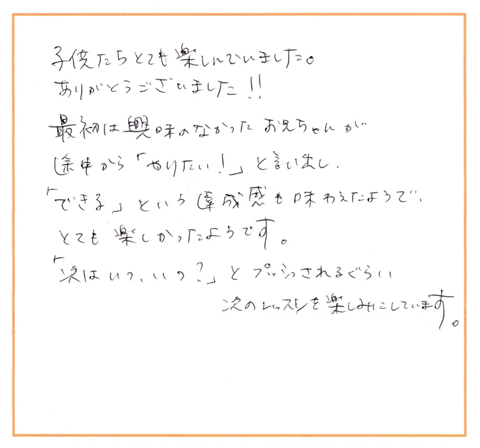 子供たちとても楽しんでいました。
ありがとうございました!!
最初は興味のなかったお兄ちゃんが
途中から「やりたい!」と言い出し、
「できる」という達成感も味わえたようで、
とても楽しかったようです。
「次はいつ、いつ?」とプッシュされるぐらい
次のレッスンを楽しみにしています。